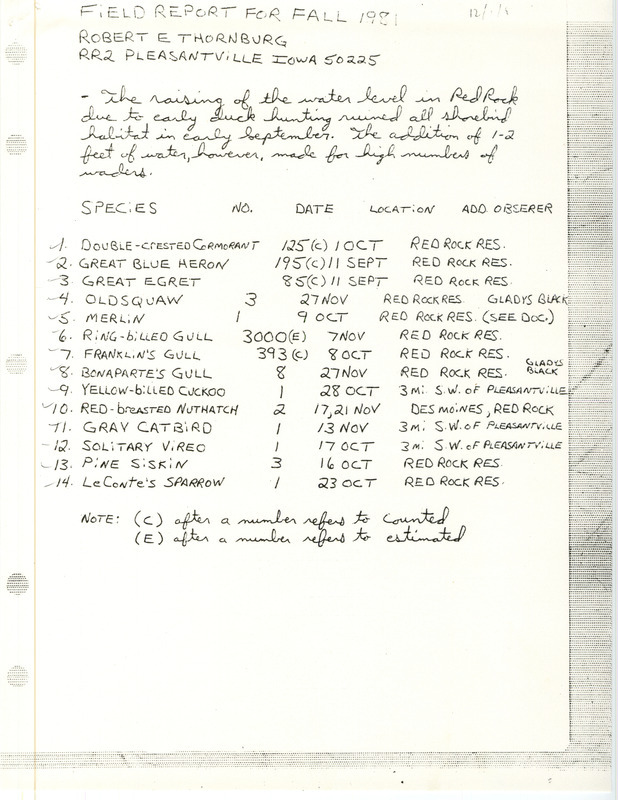 FIELD REPORT FOR FALL 1981
ROBERT E THORNBURG
RR2 PLEASANTVILLE IOWA 50225
- The raising of the water level in Red Rock
due to early duck hunting ruined all shorebird
habitat in early September. The addition of 1-2
feet of water, however, made for high numbers of
waders.
SPECIES NO. DATE LOCATION ADD. OBSERER
1. DOUBLE-CRESTED CORMORANT 125(C) 1 OCT RED ROCK RES.
2. GREAT BLUE HERON 195(C) 11 SEPT RED ROCK RES.
3 GREAT EGRET 85(C) 11 SEPT RED ROCK RES.
4. OLDSQUAW 3 27 NOV RED ROCK RES. GLADYS BLACK
5. MERLIN 1 9 OCT RED ROCK RES. (SEE DOC.)
6. RING-BILLED GULL 3000(E) 7 NOV RED ROCK RES.
7. FRANKLIN'S GULL 393(C) 8 OCT RED ROCK RES.
8. BONAPARTE'S GULL 8 27 NOV RED ROCK RES. GLADYS BLACK
9. YELLOW-BILLED CUCKOO 1 28 OCT 3 MI. S.W. OF PLEASANTVILLE
10. RED-BREASTED NUTHATCH 2 17,21 NOV DES MOINES, RED ROCK
11. GRAY CATBIRD 1 13 NOV 3 MI. S.W. OF PLEASANTVILLE
12. SOLITARY VIREO 1 17 OCT 3 MI. S.W. OF PLEASANTVILLE
13. PINE SISKIN 3 16 OCT RED ROCK RES.
14. LeCONTE'S SPARROW 1 23 OCT RED ROCK RES.
NOTE: (C) after a number refers to counted
(E) after a number refers to estimated